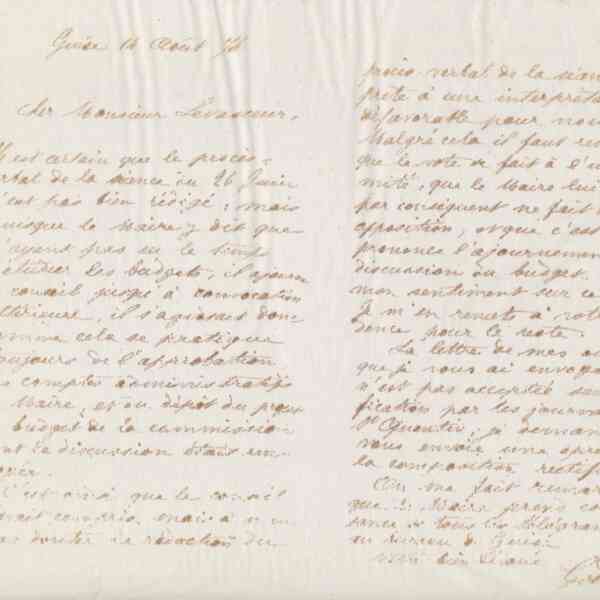 Guise 14 Août 76
Cher Monsieur Levasseur,
Il est certain que le procès-
verbal de la séance du 26 Juin
n'est pas bien rédigé ; mais
puisque le Maire y dit que
n'ayant pas eu le temps
d'étudier les budgets, il ajourne
conseil jusqu'à convocation
ultérieure, il s'agissait donc
comme cela se pratique
toujours de l'approbation
comptes administratifs
Maire, et du dépôt du projet
budget de la commission
dont la discussion était
C'est ainsi que le conseil
avait compris, mais
pas douter la rédaction du
procès-verbal de la séan
prête à une interpréta
défavorable pour nou
Malgré cela il faut re
que le vote se fait à l'u
mité, que le Maire lui
par conséquent ne fait
opposition, et que c'est
prononce l'ajournemen
discussion du budget.
mon sentiment sur ce
Je m'en remets à votre
dence pour le reste.
La lettre de mes
que je vous ai envoyé
n'est pas acceptée san
fication par les journa
St Quentin, je
vous envoie une épre
la composition rectifi
On me fait remar
que le Maire prend co
sance de tous les télégram
au bureau de Guise
votre bien dévoué
God